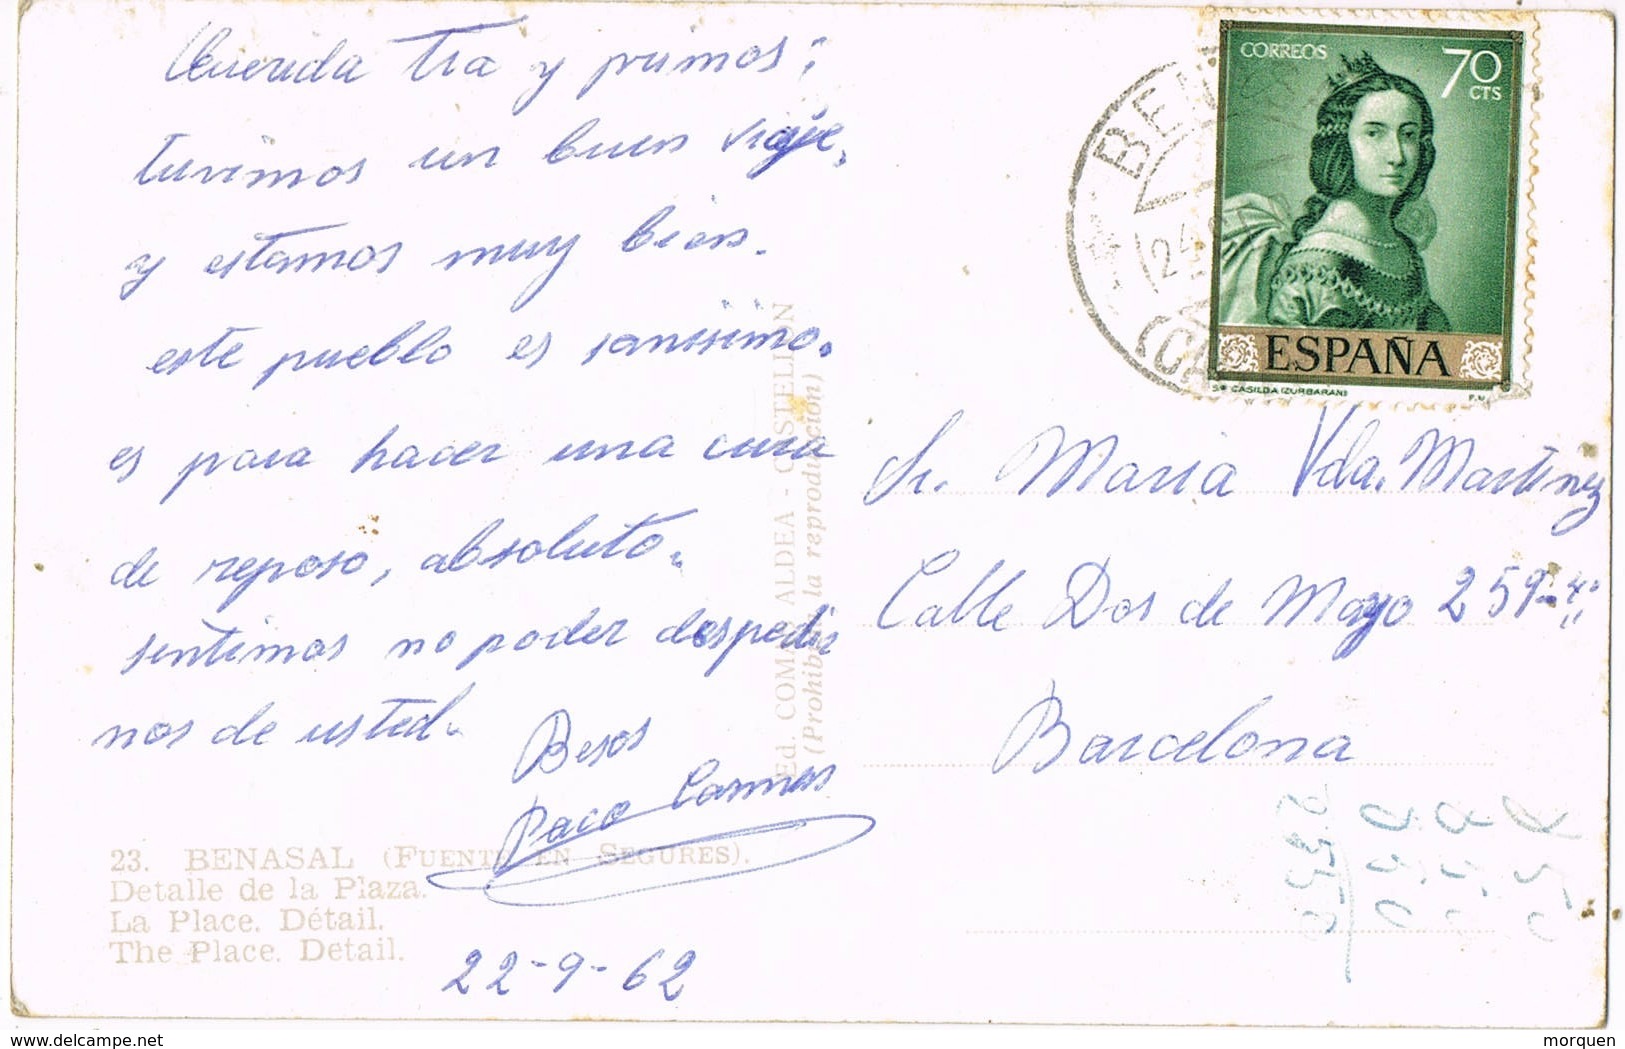 Querida tia y primos;
tuvimos un buen viaje,
y estamos muy bien.
este pueblo es sanisimo.
es para hacer una cura
de reposo, absoluto.
sentimos no poder despedir
nos de usted.
Besos
Paco Carmen
22-9-62
23. BENASAL (FUENTE EN SEGURES).
Detalle de la Plaza.
La Place. Détail.
The Place. Detail.
Ed. COMAS ALDEA - CASTELLON
(Prohibida la reproducción)
CORREOS
70
CTS
ESPAÑA
Sta CASILDA (ZURBARAN)
BEN
24
(CA
Sr. Maria Vda. Martinez
Calle Dos de Mayo 259
Barcelona
morquen